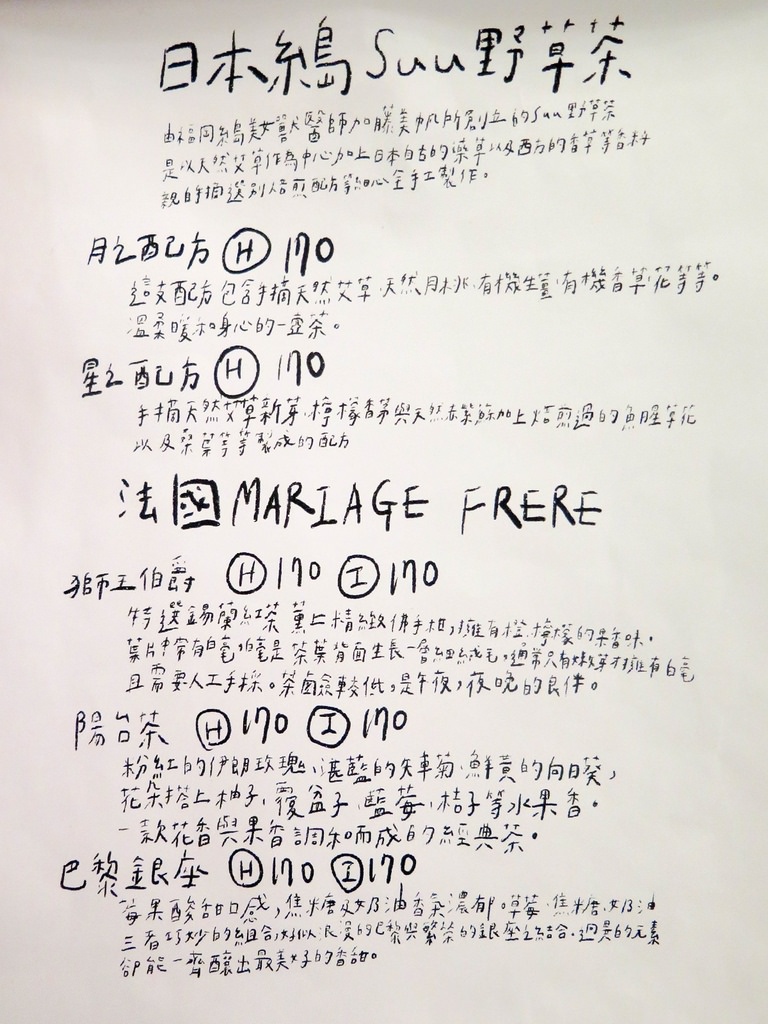 日本糸島Suu野草茶
由福岡糸島美女獸醫師加藤美帆所創立的Suu野草茶
是以天然艾草作為中心加上日本自古的藥草以及西方的香草等香料
親自手摘選別焙煎配方等細心全手工製作。
月之配方 Ⓗ 170
這支配方包含手摘天然艾草、天然月桃、有機生薑、有機香草花等等。
溫柔暖和身心的一壺茶。
星之配方 Ⓗ 170
手摘天然艾草新芽、檸檬香茅與天然赤紫蘇加上焙煎過的魚腥草花
以及桑葉等等製成的配方
法國 MARIAGE FRERE
獅王伯爵 Ⓗ170 Ⓘ170
特選錫蘭紅茶 薰上精緻佛手柑,擁有橙、檸檬的果香味。
葉片中帶有白毫,白毫是茶葉背面生長一層細絨毛,通常只有嫩芽才擁有白毫
且需要人工手採。茶鹵鹼較低,是午夜,夜晚的良伴。
陽台茶 Ⓗ170 Ⓘ170
粉紅的伊朗玫瑰、湛藍的矢車菊、鮮黃的向日葵,
花朵搭上柚子、覆盆子、藍莓、桔子等水果香。
一款花香與果香調和而成的經典茶。
巴黎銀座 Ⓗ170 Ⓘ170
莓果酸甜口感,焦糖及奶油香氣濃郁。草莓、焦糖、奶油
三者巧妙的組合,好似浪漫的巴黎與繁榮的銀座之結合.迥異的元素
卻能一齊釀出最美好的香甜。